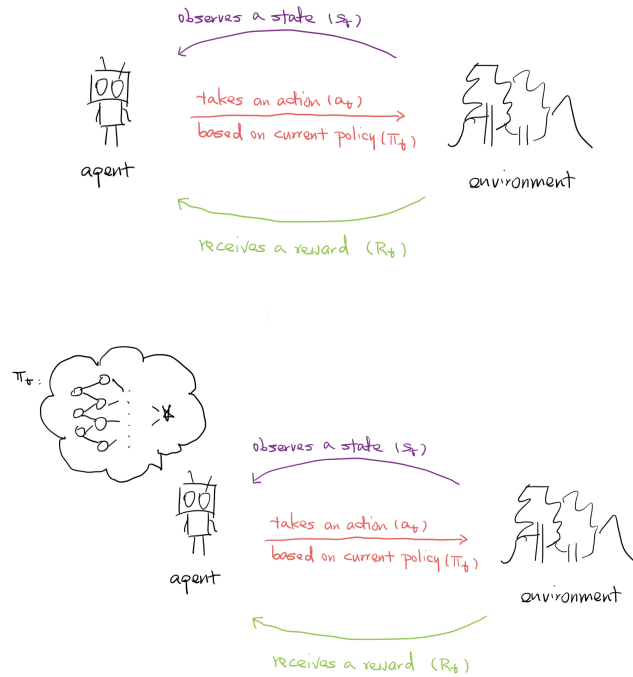 observes a state (St)
takes an action (at)
based on current policy (πt)
agent
environment
receives a reward (Rt)
πt:
observes a state (St)
takes an action (at)
based on current policy (πt)
agent
environment
receives a reward (Rt)